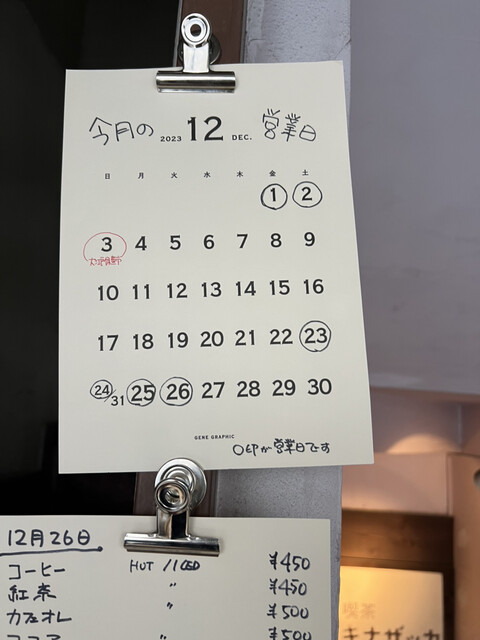 今月の 2023 12 DEC. 営業日
日 月 火 水 木 金 土
1 2
3 4 5 6 7 8 9
10 11 12 13 14 15 16
17 18 19 20 21 22 23
24/31 25 26 27 28 29 30
GENE GRAPHIC
○印が営業日です
12月26日
コーヒー HOT / ICED ¥450
紅茶 〃 ¥450
カフェオレ 〃 ¥500
ココア 〃 ¥500
喫茶